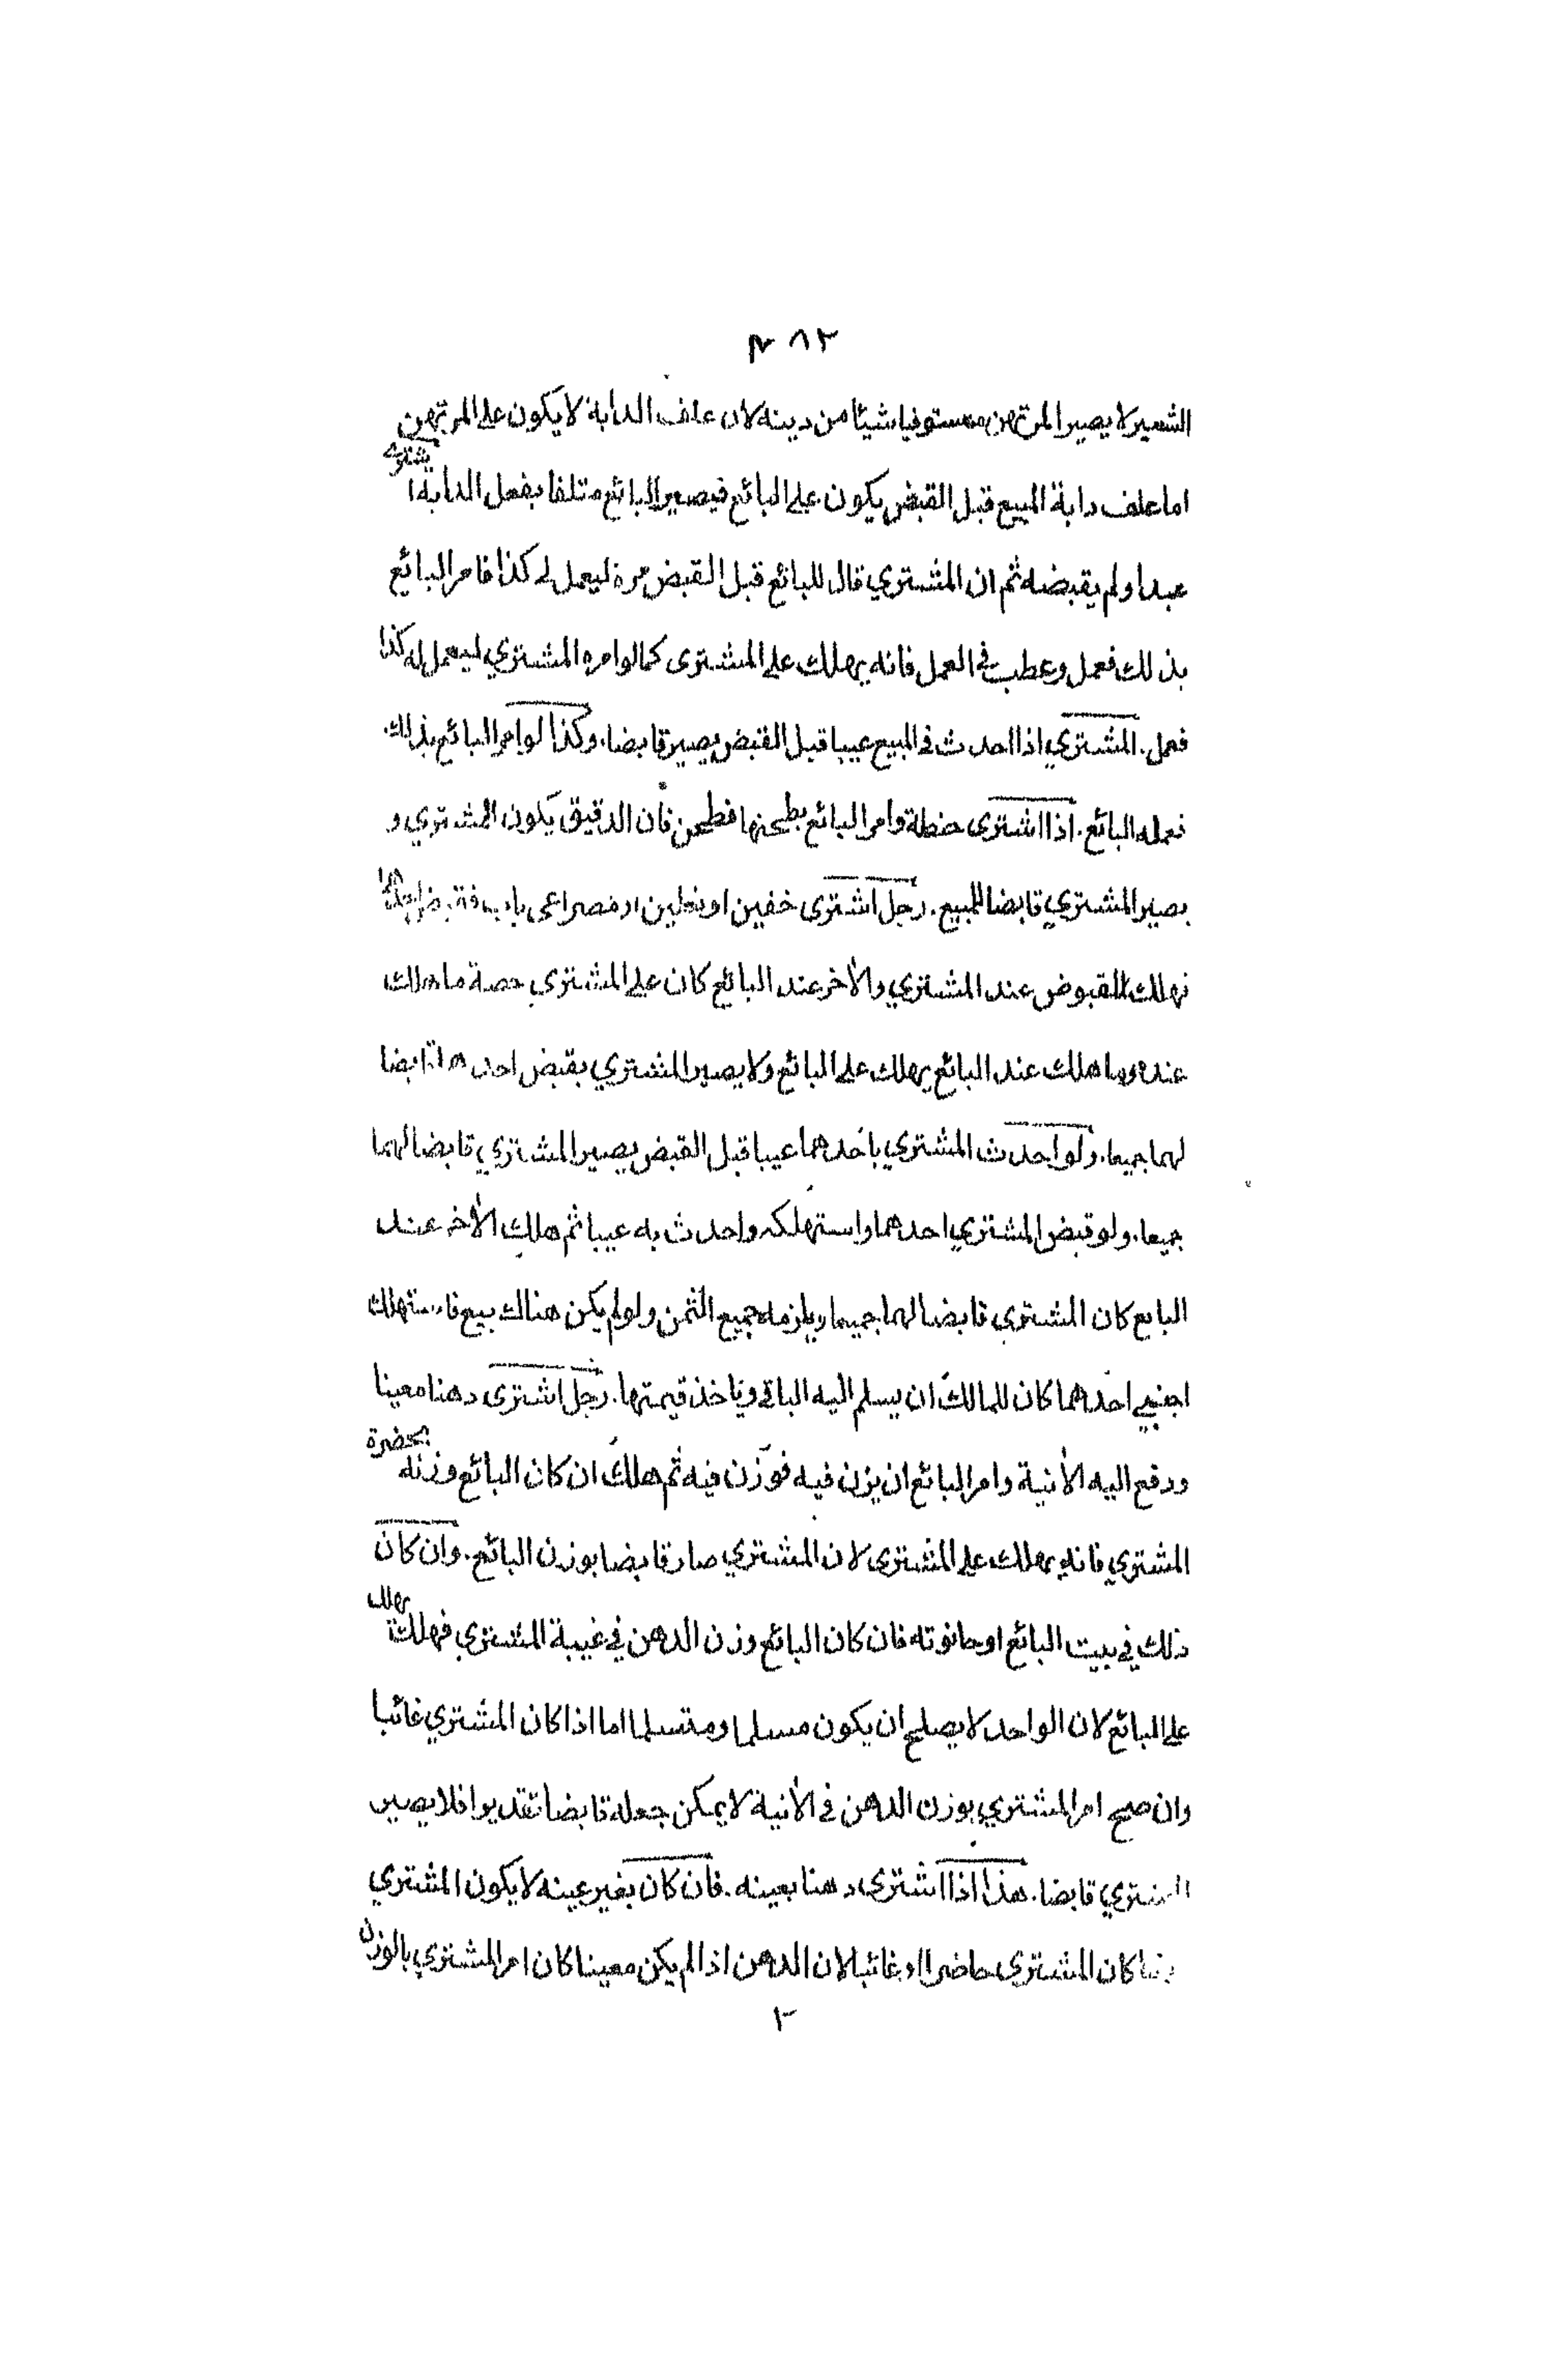 ٨٢
الشعير لا يصير المرتهن مستوفيا شيئا من دينه لان علف الدابة لا يكون على المرتهن
اما علف دابة المبيع قبل القبض يكون على البائع فيصير البائع متلفا بفعل الدابة اشترى
عبدا ولم يقبضه ثم ان المشتري قال للبائع قبل القبض مره ليعمل لي كذا فامر البائع
بذلك فعمل وعطب في العمل فانه يهلك على المشترى كما لو امره المشتري ليعمل له كذا
فعمل. المشتري اذا احدث في المبيع عيبا قبل القبض يصير قابضا. وكذا لو امر البائع بذلك
فعمله البائع. اذا اشترى حنطة وامر البائع بطحنها فطحن فان الدقيق يكون للمشتري و
يصير المشتري قابضا للمبيع. رجل اشترى خفين او نعلين او مصراعى باب فقبض احدهما
فهلك المقبوض عند المشتري والأخر عند البائع كان على المشتري حصة ما هلك
عنده وما هلك عند البائع يهلك على البائع ولا يصير المشتري بقبض احدهما قابضا
لهما جميعا. ولو احدث المشتري باحدهما عيبا قبل القبض يصير المشتري قابضا لهما
جميعا. ولو قبض المشتري احدهما واستهلكه واحدث به عيبا ثم هلك الأخر عند
البايع كان المشترى قابضا لهما جميعا ويلزمه جميع الثمن ولو لم يكن هناك بيع فاستهلك
اجنبي احدهما كان للمالك ان يسلم اليه الباقي وياخذ قيمتها. رجل اشترى دهنا معينا
ودفع اليه الأنية وامر البائع ان يزن فيه فوزن فيه ثم هلك ان كان البائع وزنه بحضرة
المشتري فانه يهلك على المشترى لان المشتري صار قابضا بوزن البائع. وان كان
ذلك في بيت البائع او حانوته فان كان البائع وزن الدهن في غيبة المشتري فهلك يهلك
على البائع لان الواحد لا يصلح ان يكون مسلما ومتسلما اما اذا كان المشتري غائبا
وان صح امر المشتري بوزن الدهن في الأنية لا يمكن جعله قابضا تقديرا فلا يصير
المشتري قابضا. هذا اذا اشترى دهنا بعينه. فان كان بغير عينه لا يكون المشتري
كان المشترى حاضرا او غائبا لان الدهن اذا لم يكن معينا كان امر المشتري بالوزن